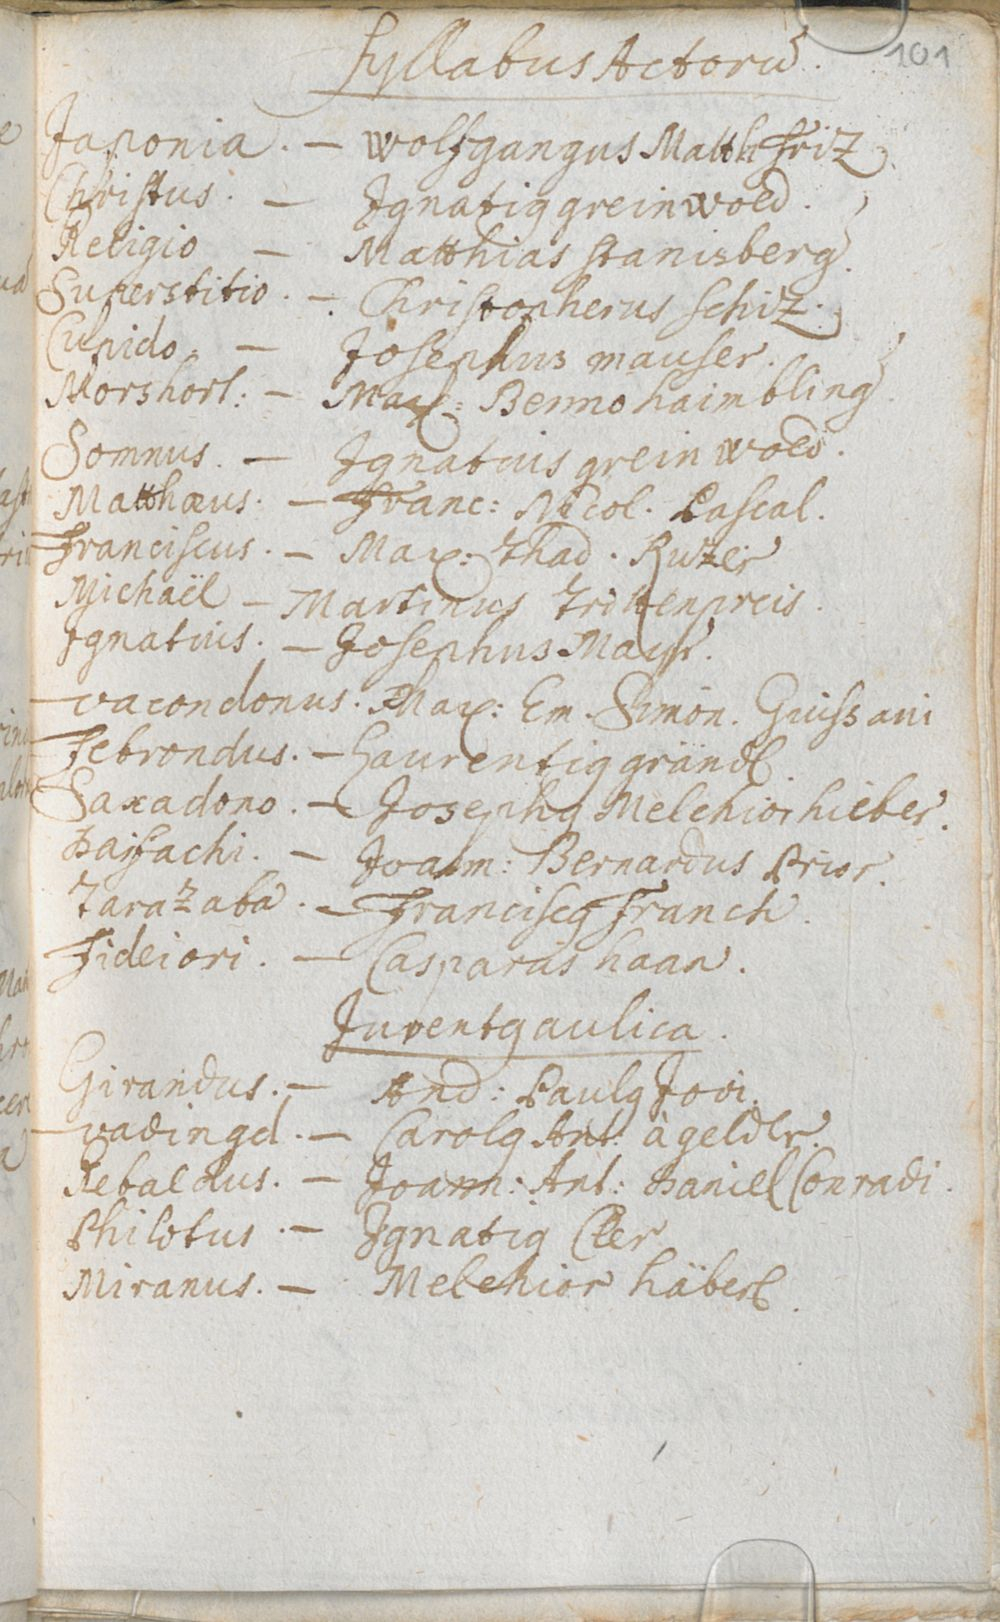 101
Syllabus Actorū.
Japonia. - Wolfgangus Matth Friz
Christus. - Ignatiꝰ greinwold.
Religio - Matthias Stanisberg.
Superstitio. - Christopherus Schiz.
Cupido. - Josephus Mauser.
Mors hort: - Max: Benno haimbling.
Somnus. - Ignatius greinwold.
Matthæus. - Franc: Nicol. Pascal.
Franciscus. - Max: Thad.
Michaël - Martinus Trittenpreis.
Ignatius. - Josephus Mayr.
Vacondonus. Max: Em. Simon. Guissani
Febrondus. - Laurentiꝰ grändl.
Saxadono. - Josephꝰ Melchior hieber.
Joann: Bernardus Prior.
Tarazaba. - Franciscꝰ Franck.
Fideiori. - Casparus haan.
Juventꝰ aulica.
Girandus. - And: Paulꝰ Jovi.
Carolꝰ Ant: à geldlr.
Rebaldus. - Joann: Ant: Daniel Conradi.
Philotus. - Ignatiꝰ
Miranus. - Melchior häberl.